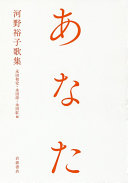 河野裕子歌集
あなた
永田和宏・永田淳・永田紅 編
岩波書店